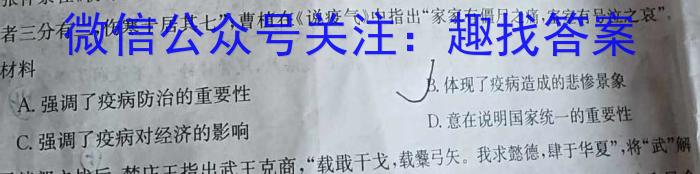 者三分有二,伤寒十居其七”,曹植在《说疫气》中指出“家家有僵尸之痛,室室有号泣之哀”。
微信公众号关注:趣找答案
材料
A. 强调了疫病防治的重要性
B. 体现了疫病造成的悲惨景象
C. 强调了疫病对经济的影响
D. 意在说明国家统一的重要性
楚庄王指出武王克商,“载戢干戈,载櫜弓矢。我求懿德,肆于华夏”,将“武”解